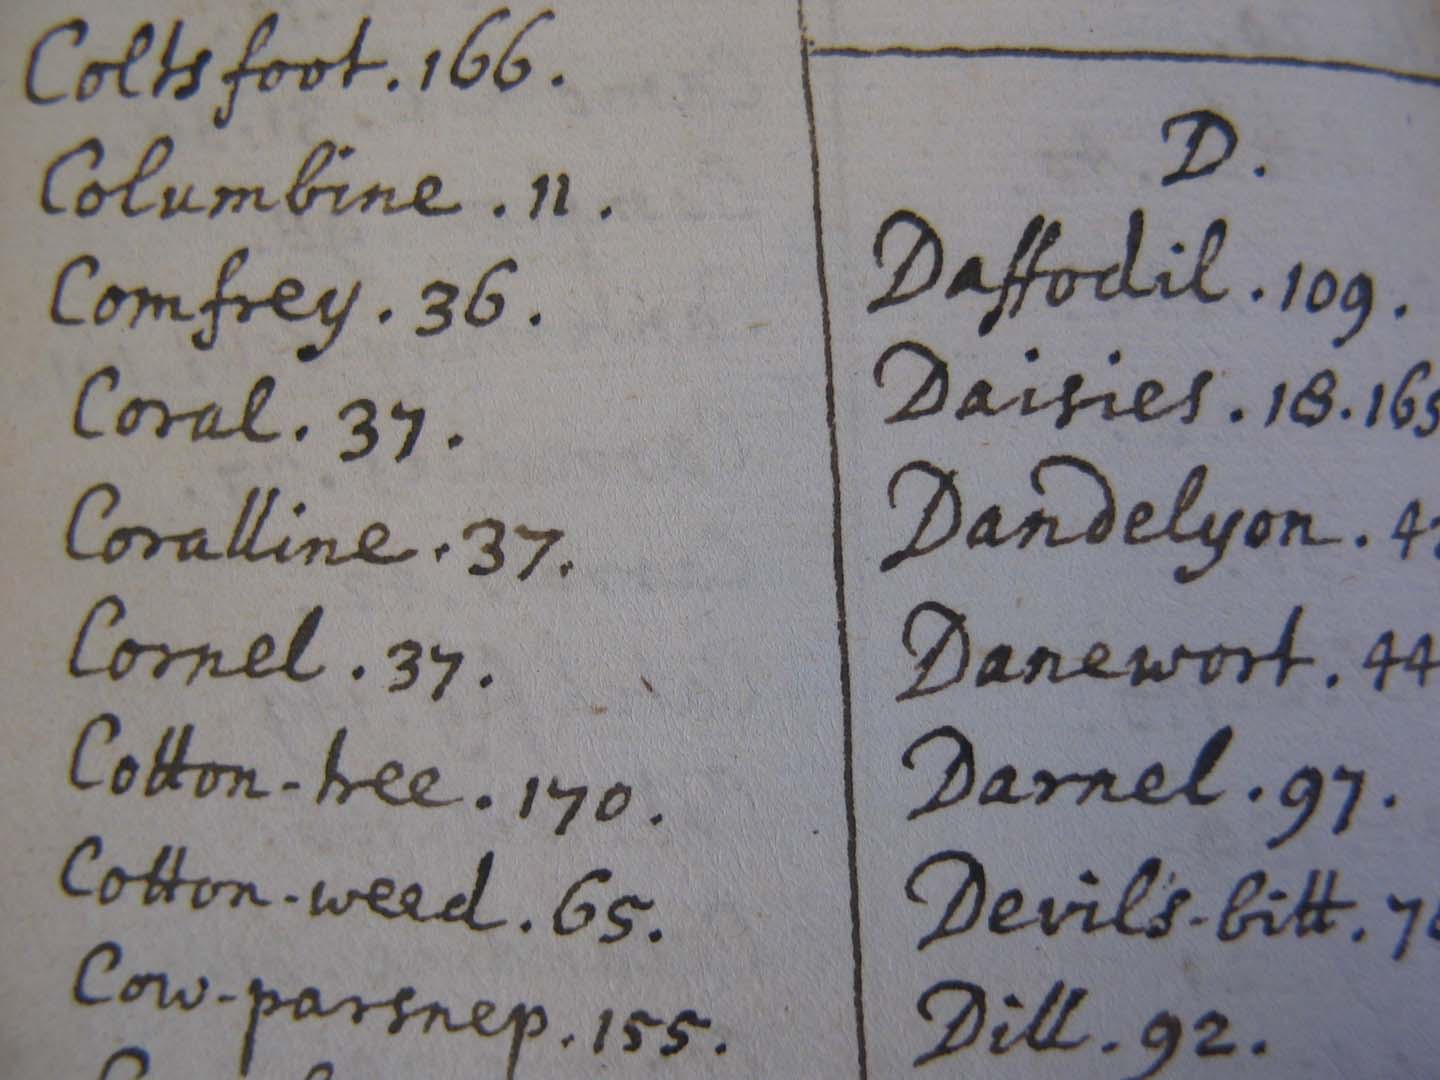 Coltsfoot. 166.
Columbine. 11.
Comfrey. 36.
Coral. 37.
Coralline. 37.
Cornel. 37.
Cotton-tree. 170.
Cotton-weed. 65.
Cow-parsnep. 155.
D.
Daffodil. 109.
Daisies. 18. 165
Dandelyon.
Danewort. 44
Darnel. 97.
Devils-bitt.
Dill. 92.